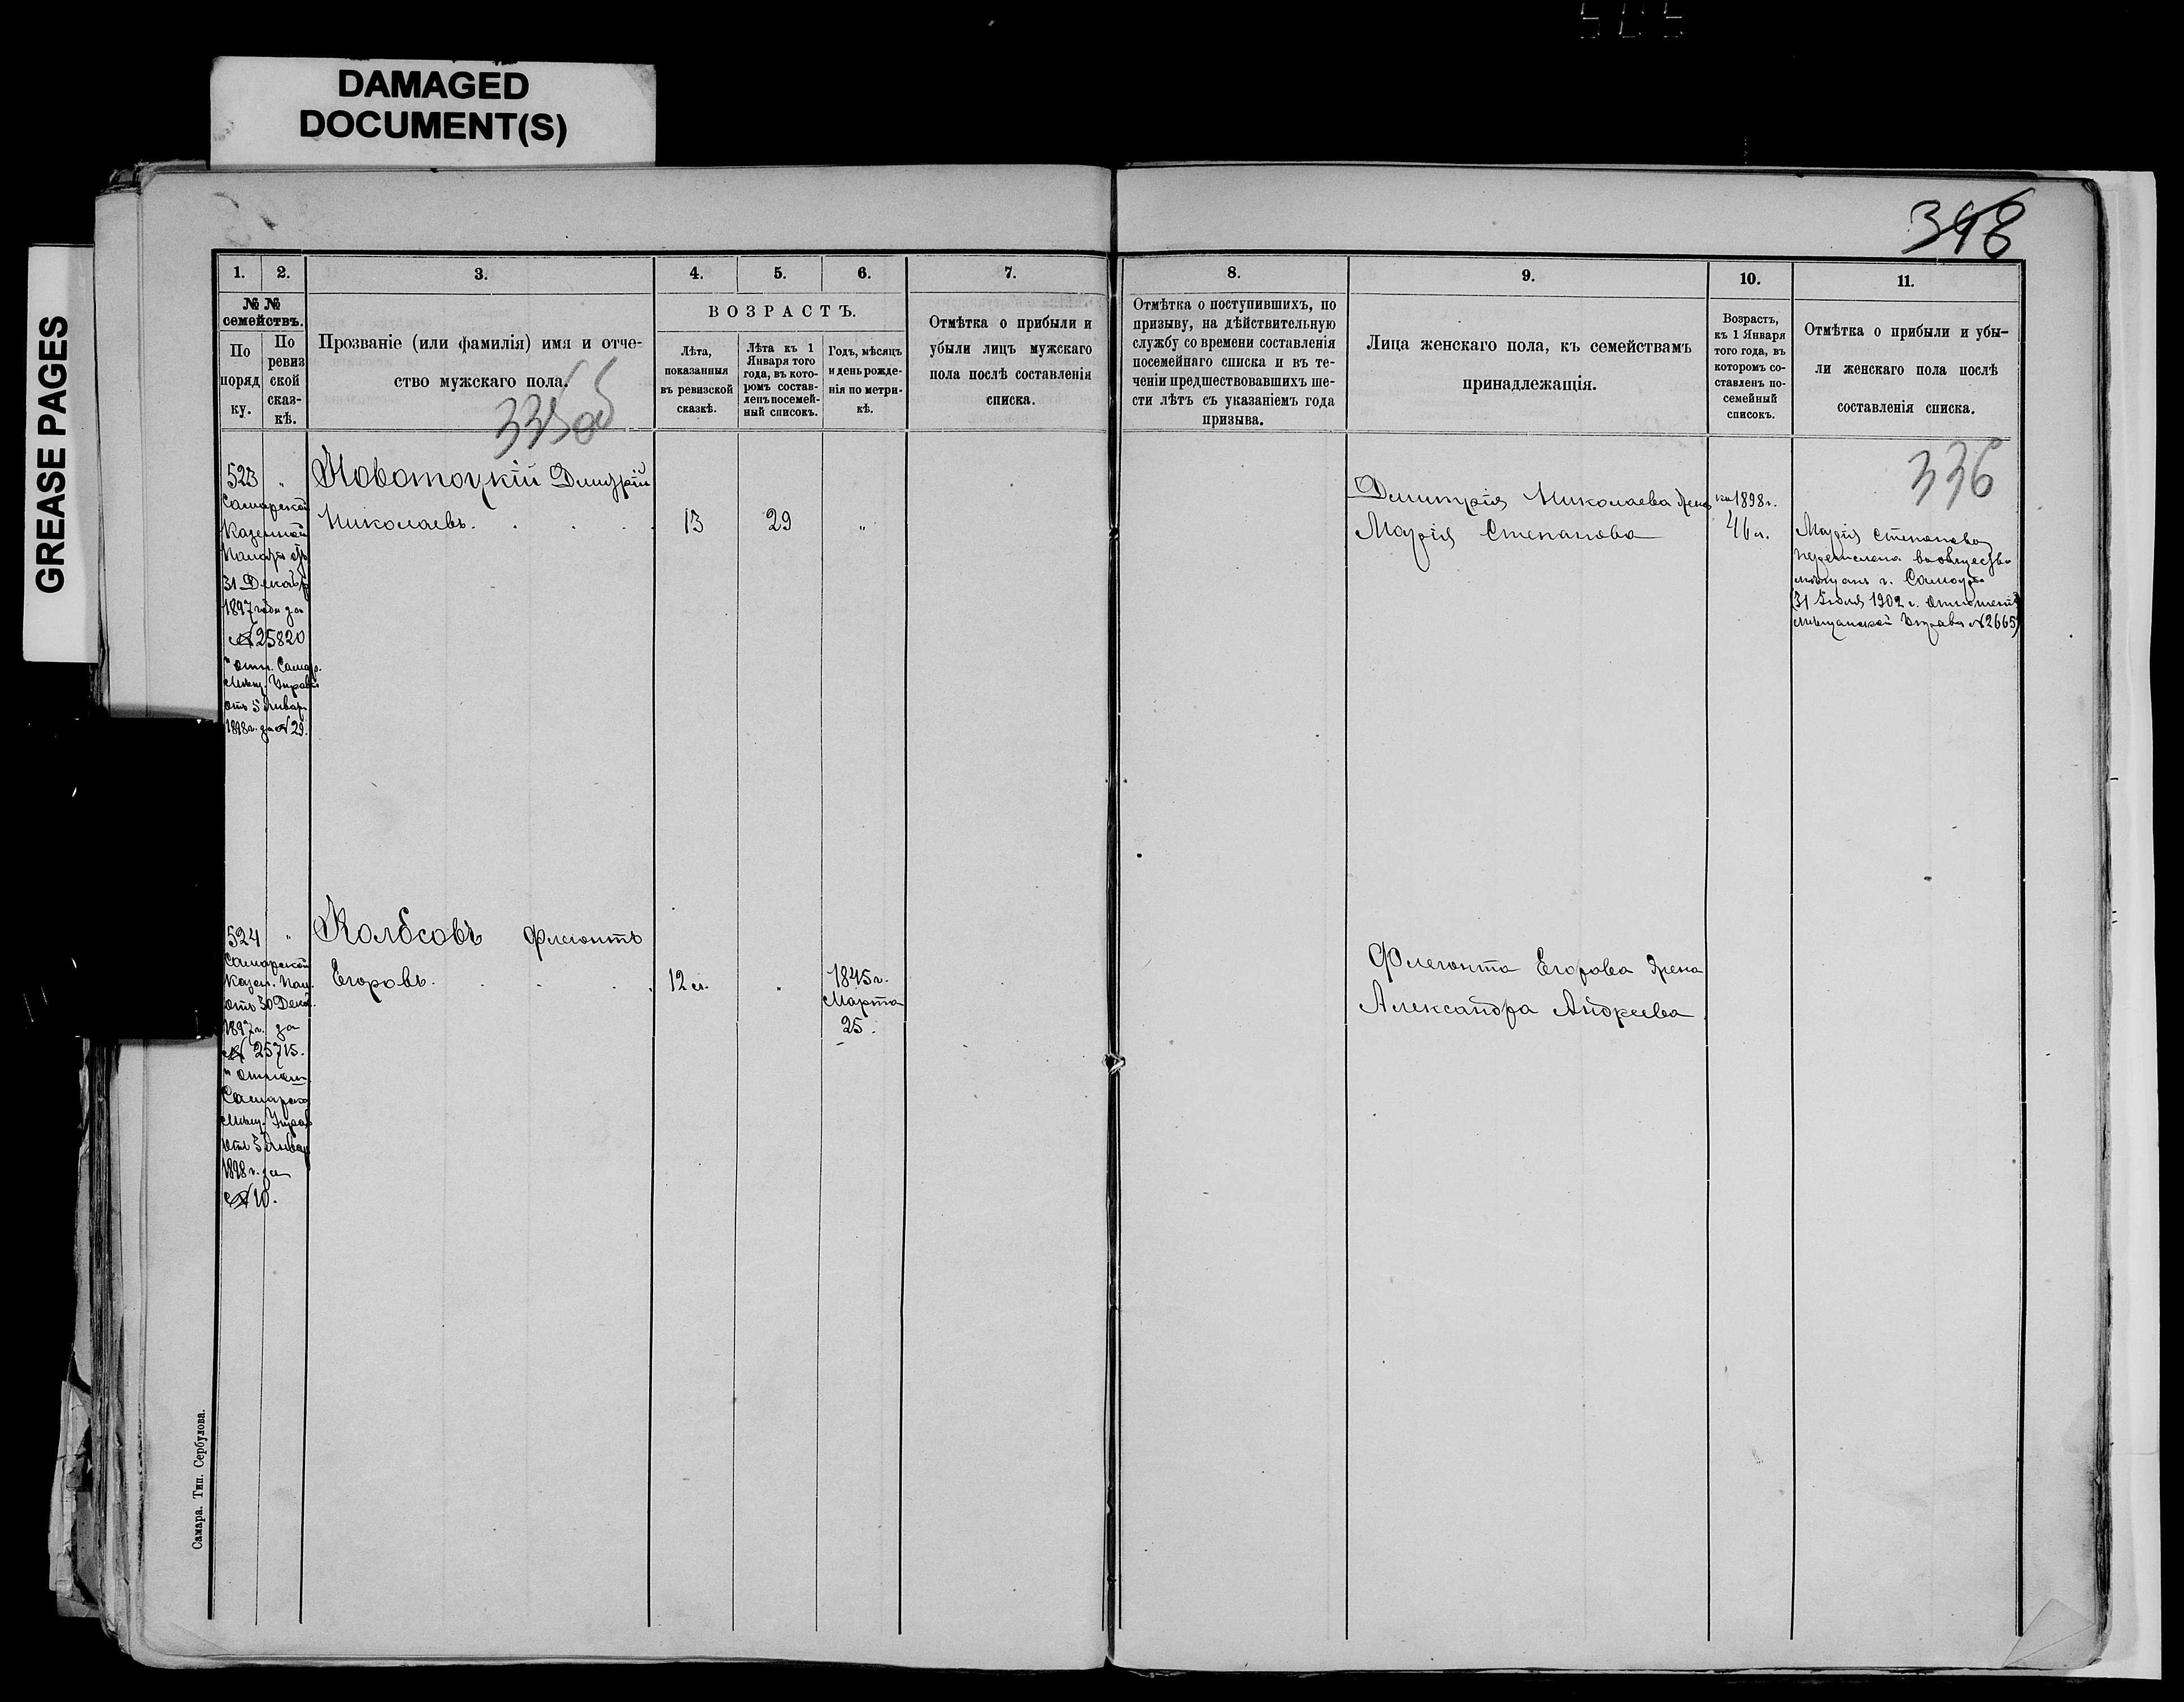 DAMAGED
DOCUMENT(S)
GREASE PAGES
348
1.
2.
3.
4.
5.
6.
7.
№ №
семействъ.
По
поряд
ку.
По
ревиз
ской
сказ-
кѣ.
Прозваніе (или фамилія) имя и отче-
ство мужскаго пола.
335 об
ВОЗРАСТЪ.
Лѣта,
показанныя
въ ревизской
сказкѣ.
Лѣта къ 1
Января того
года, въ кото-
ромъ состав-
ленъ посемей-
ный списокъ.
Годъ, мѣсяцъ
и день рожде-
нія по метри-
кѣ.
Отмѣтка о прибыли и
убыли лицъ мужскаго
пола послѣ составленія
списка.
8.
9.
10.
11.
Отмѣтка о поступившихъ, по
призыву, на дѣйствительную
службу со времени составленія
посемейнаго списка и въ те-
ченіи предшествовавшихъ ше-
сти лѣтъ съ указаніемъ года
призыва.
Лица женскаго пола, къ семействамъ
принадлежащія.
Возрастъ,
къ 1 Января
того года, въ
которомъ со-
ставленъ по-
семейный
списокъ.
Отмѣтка о прибыли и убы-
ли женскаго пола послѣ
составленія списка.
336
523 "
Самарской
Казенной
Палаты отъ
31 Декабр
1897 года за
№ 25820
" отн. Самар.
Мѣщ. Управы
отъ 5 Январ
1898 г. за № 29.
Новотоцкій Дмитрій
Николаевъ.
13
29
"
Дмитрія Николаева жена
Марія Степанова
къ 1898 г.
46 л.
Марія Степанова
перечислена въ общество
мѣщанъ г. Самары
(31 Іюля 1902 г. отношеніе
Мѣщанской Управы № 2665)
524 "
Самарской
Казен. Пал.
отъ 30 Дека.
1897 г. за
№ 25715.
" отнош.
Самарско
Мѣщ. Управ
отъ 5 Январ
1898 г. за
№ 10.
Колбсовъ Флегонтъ
Егоровъ.
12 л.
"
1845 г.
Марта
25.
Флегонта Егорова жена
Александра Андреева
Самара. Тип. Сербулова.